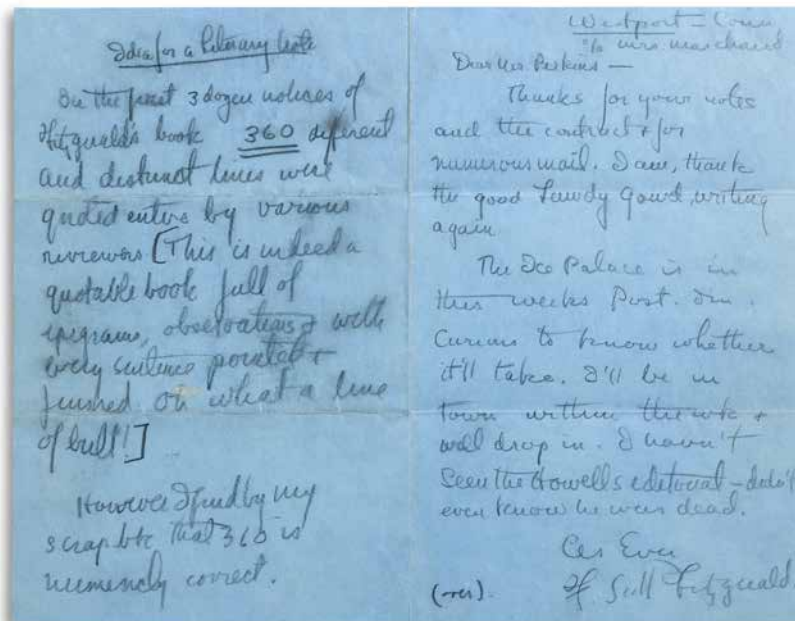 Idea for a Literary Note
In the first 3 dozen notices of
Fitzgerald's book 360 different
and distinct lines were
quoted entire by various
reviewers [This is indeed a
quotable book full of
epigrams, observations & with
every sentence pointed &
finished. Oh what a line
of bull!]
However I find by my
scrap bk that 360 is
numericly correct.
Westport – Conn
% Mrs. Marchand
Dear Mr Perkins —
Thanks for your notes
and the contract & for
numerous mail. I am, thank
the good Lawdy Gawd, writing
again
The Ice Palace is in
this weeks Post. I'm
curious to know whether
it'll take. I'll be in
town within the wk &
will drop in. I haven't
seen the Howells editorial – didn't
even know he was dead.
As Ever
F. Scott Fitzgerald
(over).